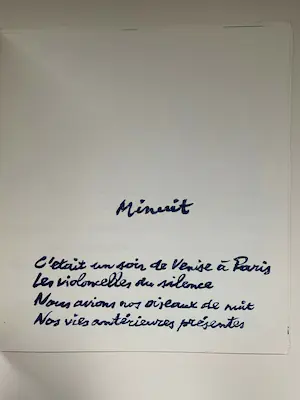 Minuit
C'était un soir de Venise à Paris
Les violoncelles du silence
Nous avions nos oiseaux de nuit
Nos vies antérieures présentes